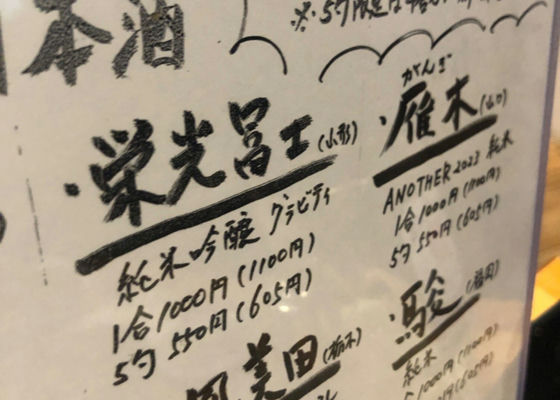 日本酒
・栄光冨士(山形)
純米吟醸 グラビティ
1合1000円(1100円)
5勺 550円(605円)
がんぎ
・雁木(山口)
ANOTHER 2023 純米
1合1000円(1100円)
5勺 550円(605円)
美田(栃木)
・駿(福岡)
純米
1000円(1100円)